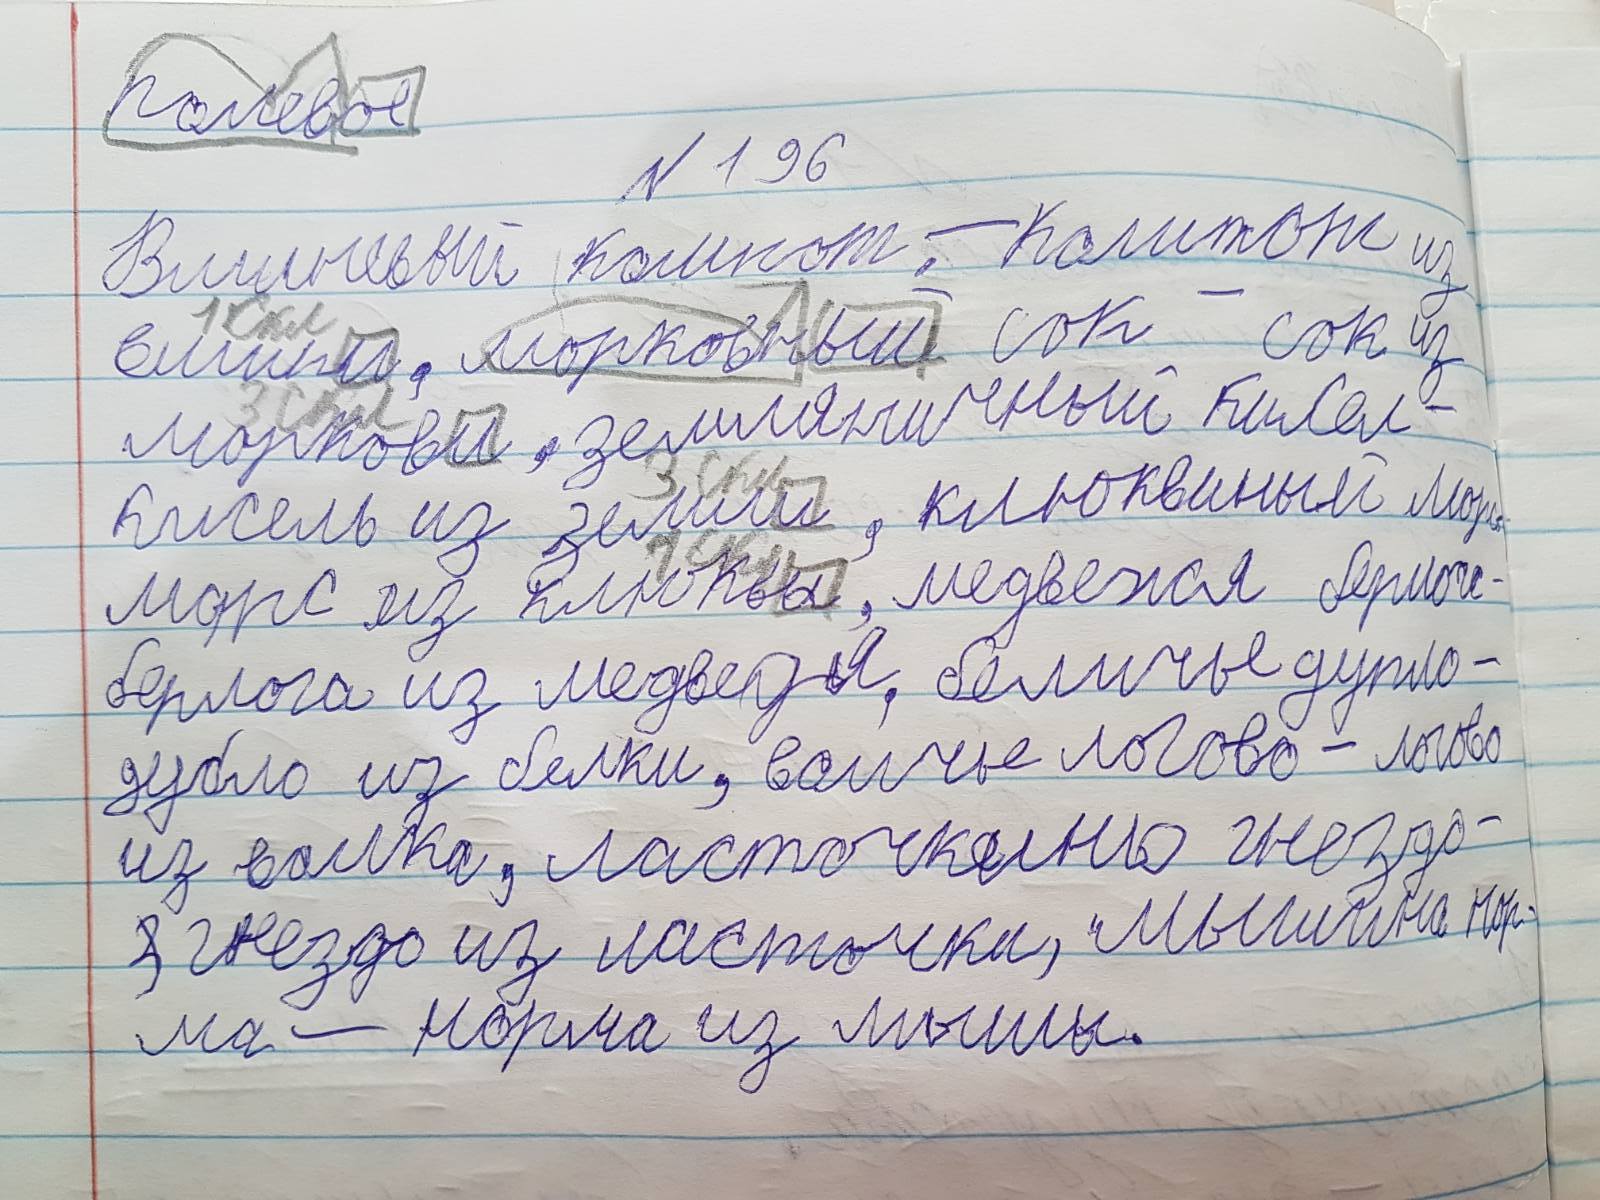 полевое
№ 196
Влишневый компот, – компот из
1 скл
влишни, морковный сок – сок из
3 скл
моркови, земляничный кисел-
3 скл
кисель из земли, клюквиный морс-
1 скл
морс из клюквы, медвежся берлога-
берлога из медведья, беличье дупло-
дубло из белки, воличье логово – логово
из волка, ласточкино гнездо-
гнездо из ласточки, мышина нор-
ма – норма из мышы.